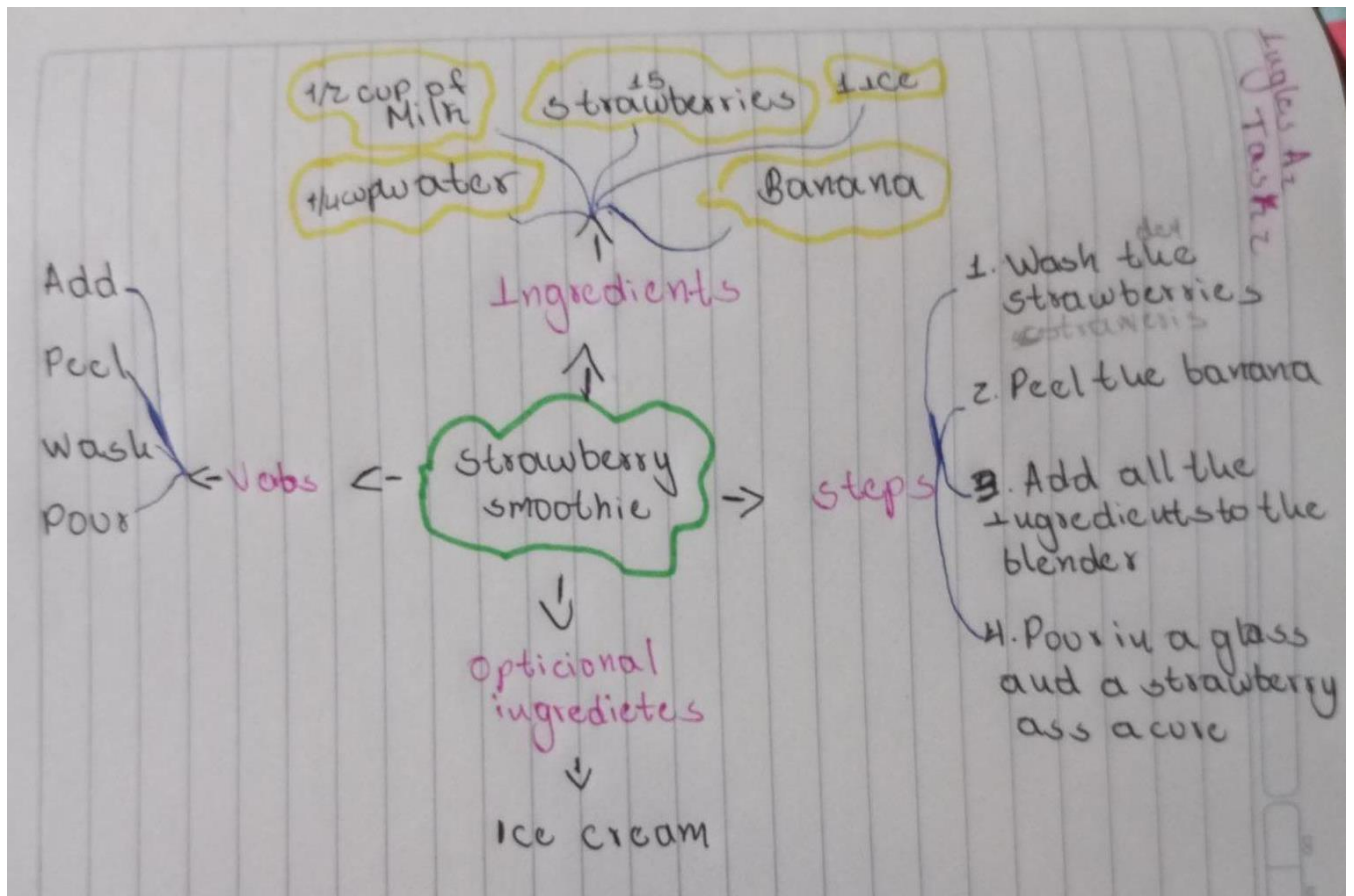 1/2 cup of
Milk
15
strawberries
1 Ice
1/4 cup water
Banana
Ingredients
Ingles A2
Task 2
Add
Peel
Wash
Pour
Vabs
strawberry
smoothie
steps
der
1. Wash the
strawberries
2. Peel the banana
3. Add all the
Ingredients to the
blender
4. Pour in a glass
and a strawberry
ass a core
Opticional
ingredietes
Ice cream